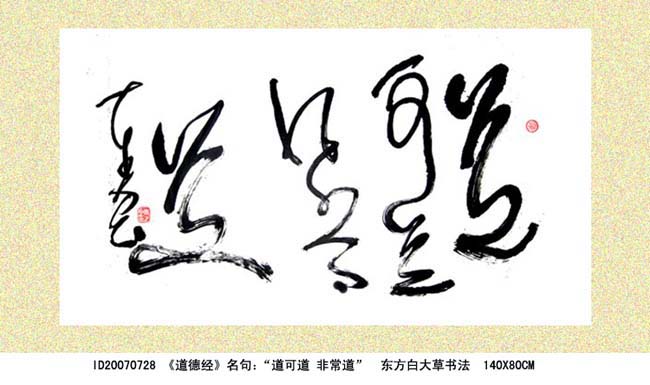 道
可道
非常
道
ID20070728 《道德经》名句：“道可道 非常道” 东方白大草书法 140X80CM